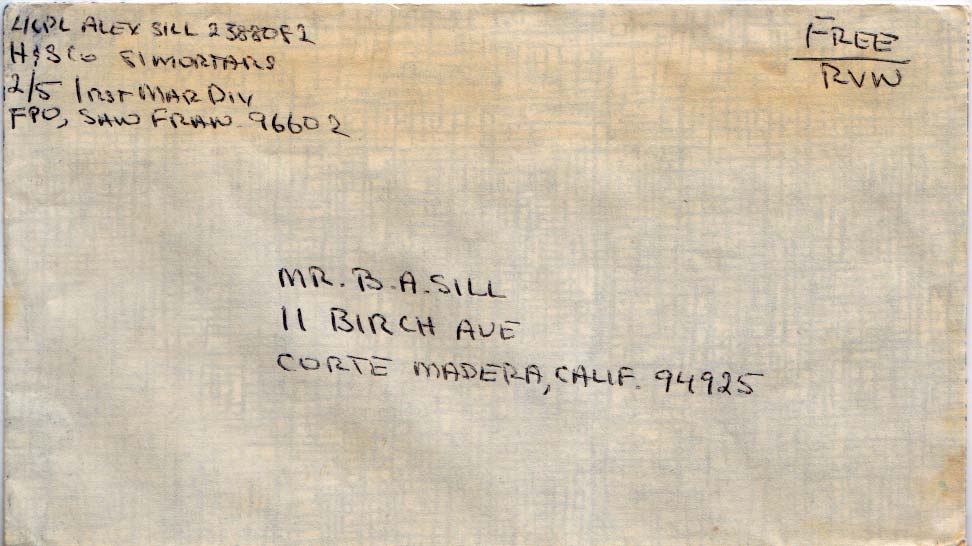 L/CPL ALEX SILL 2388082
H&SCo 81 MORTARS
2/5 1rst MAR DIV
FPO, SAN FRAN. 96602
FREE
RVN
MR. B.A. SILL
11 BIRCH AVE
CORTE MADERA, CALIF. 94925